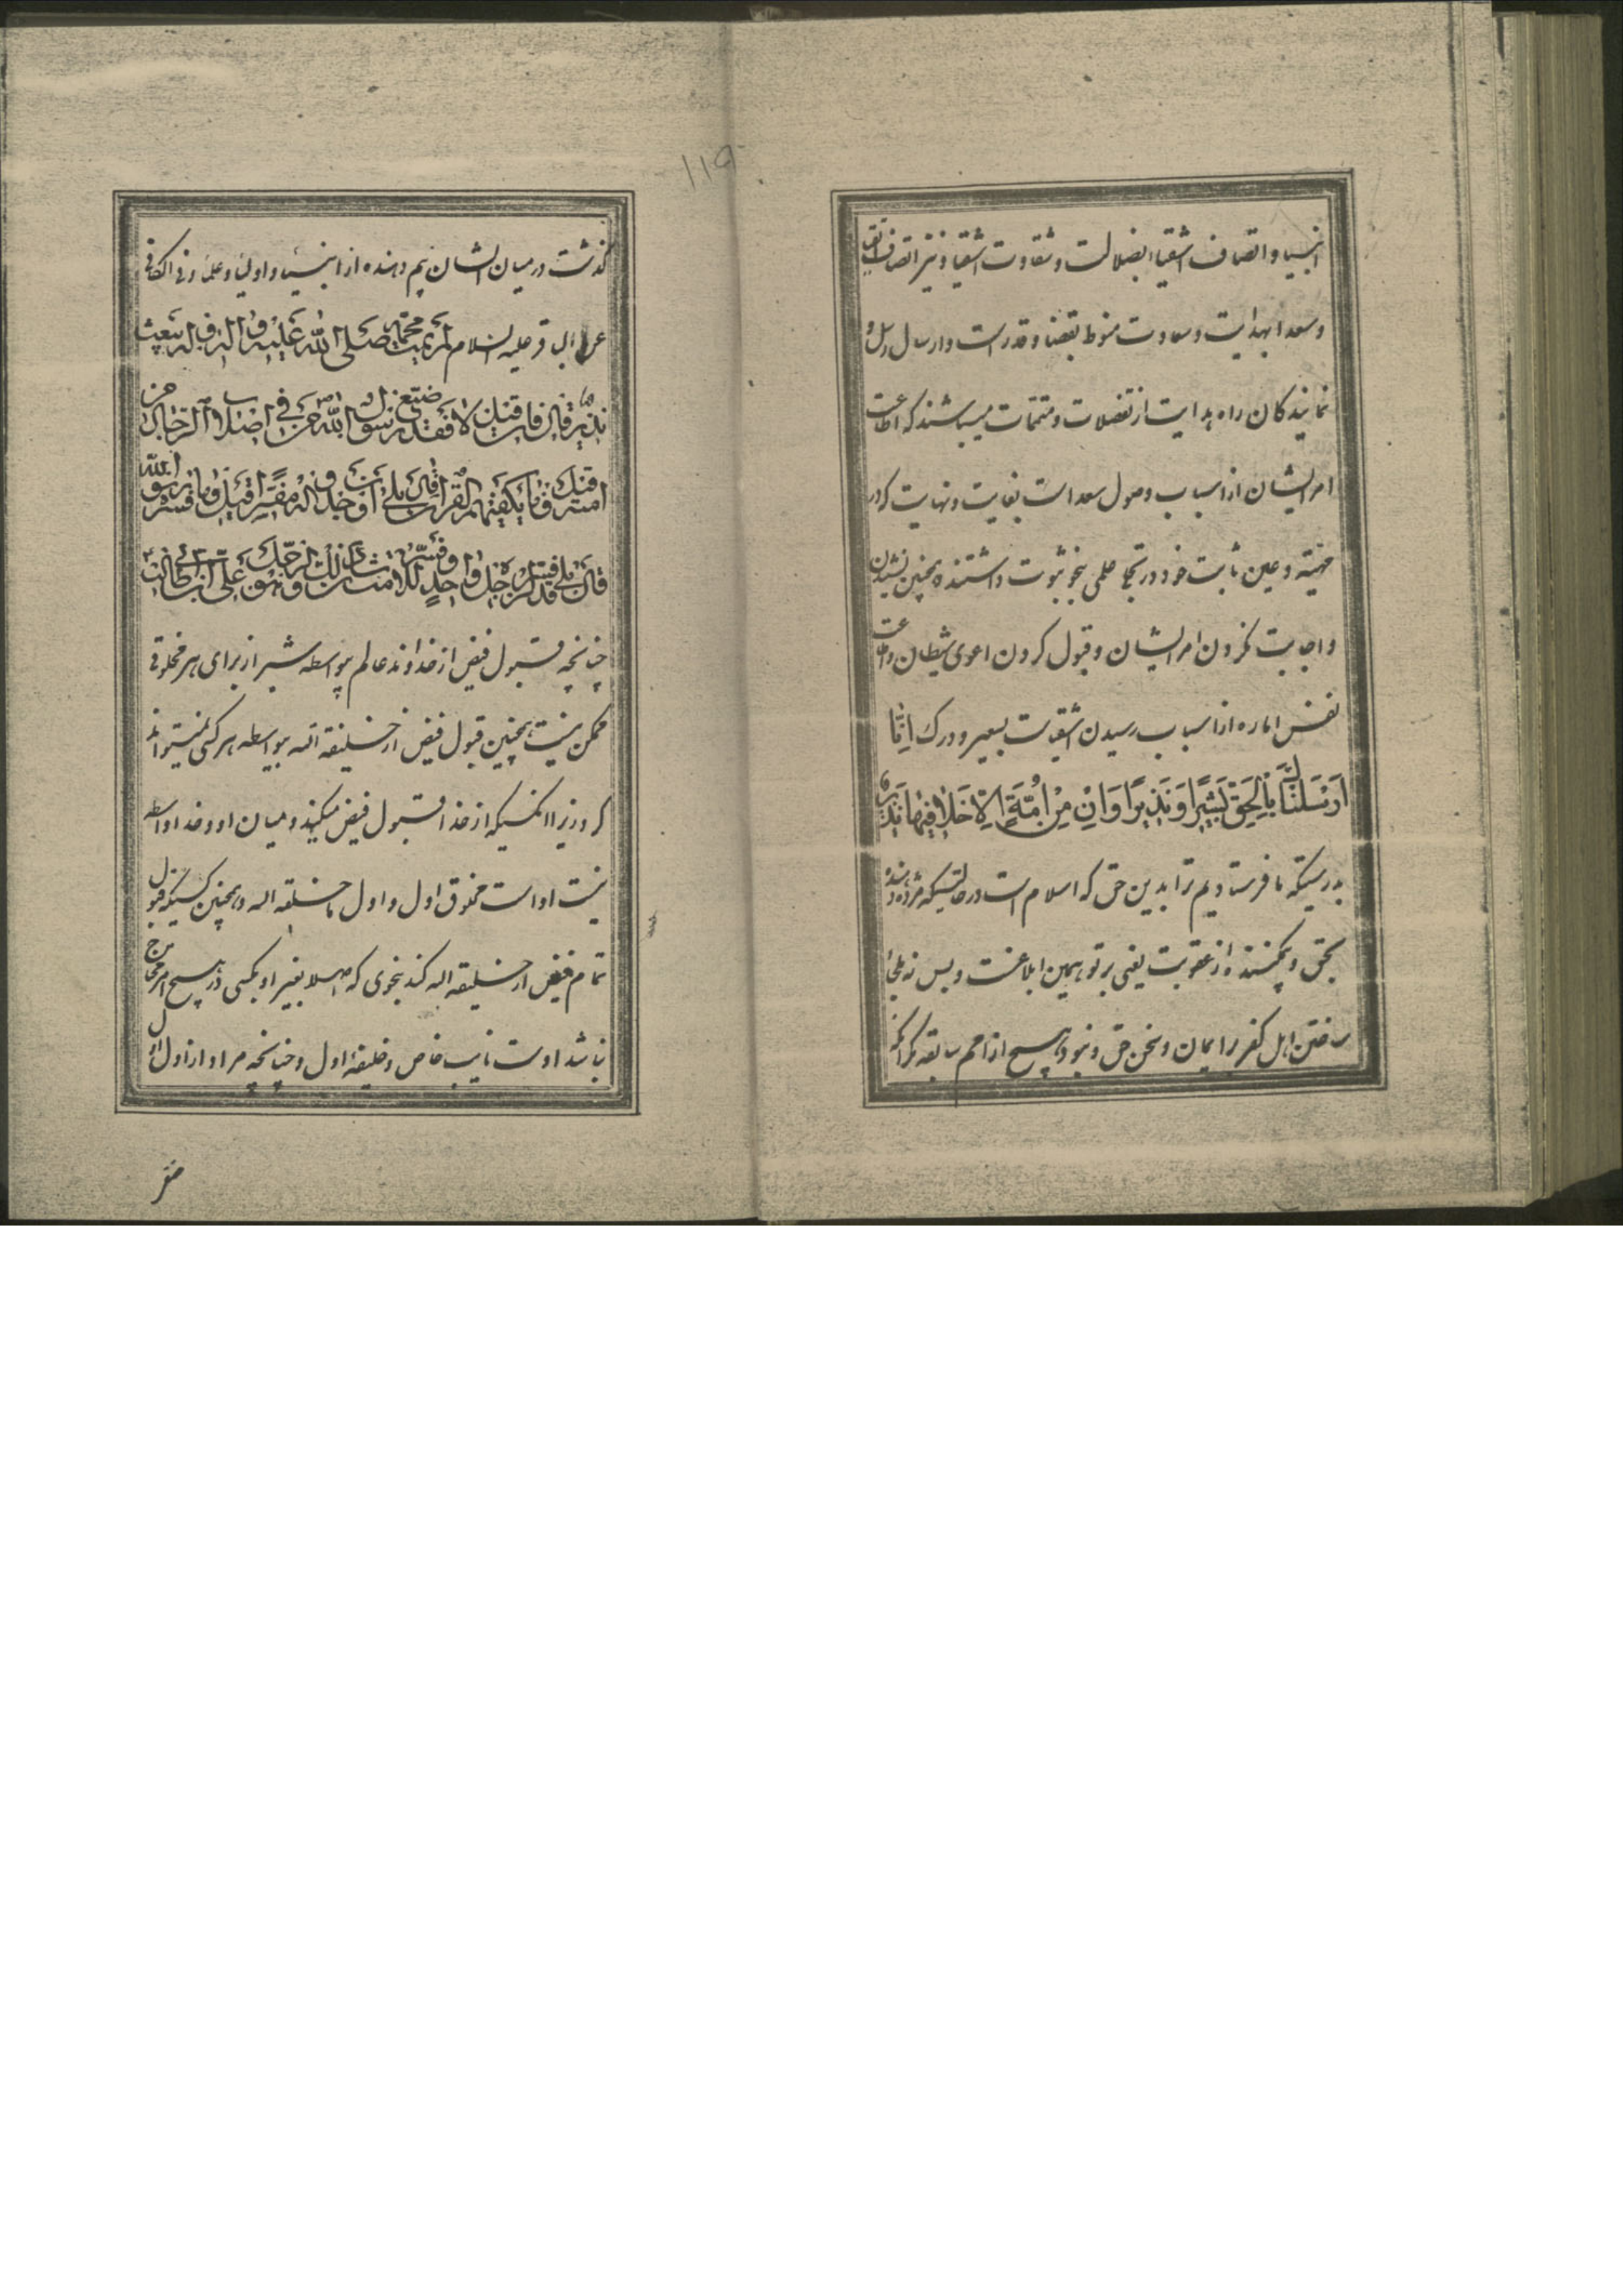 انبیا و اتصاف اشقیاء بضلالت و شقاوت اشقیا و نیز اتصاف اتقیا
و سعدا بهدایت و سعادت منوط بقضا و قدر است و ارسال رسل و
نمایندکان راه هدایت از تفضلات و متممات میباشند که اطاعت
امر ایشان از اسباب وصول سعدا است بغایت و نهایت که در
مهیته و عین ثابت خود در تجلی علمی بنحو ثبوت داشتند همچنین نشنیدن
و اجابت نکردن امر ایشان و قبول کردن اغوی شیطان و اطاعت
نفس اماره از اسباب رسیدن اشقیا است بسعیر و درک اِنّا
اَرْسَلْنَاكَ بِالْحَقِّ بَشِیرًا وَ نَذِیرًا وَ اِنْ مِنْ اُمَّةٍ اِلّا خَلا فِیهَا نَذِیر
بدرستیکه ما فرستادیم ترا بدین حق که اسلام است در حالتیکه مژده دهنده
بحق و بیمکننده از عقوبت یعنی بر تو همین ابلاغست و بس نه ملجأ
ساختن اهل کفر را بایمان و سخن حق و نبود هیچ از امم سابقه مکر آنکه
۱۱۹
کذشت در میان ایشان بیم دهنده از انبیا و اولیا و علما و فی الکافی
عن الباقر علیه السلام لم یمت محمد صلی الله علیه و اله الا و له بعیث
نذیر قال فان قیل لا فقد ضیع رسول الله من فی اصلاب الرجال من
امته قیل و ما یکفیهم القران قال بلی ان وجدوا له مفسرا قیل و ما فسره رسول الله
قال بلی قد فسره لرجل واحد و فسر للامة شان ذلک الرجل و هو علی بن ابی طالب
چنانچه قبول فیض از خداوند عالم بواسطه بشر از برای هر مخلوقی
ممکن نیست همچنین قبول فیض از خلیفة الله بیواسطه هر کسی نمیتواند
کرد زیرا انکسیکه از خدا قبول فیض میکند و میان او و خدا واسطه
نیست او است مخلوق اول و اول ما خلقه الله و همچنین کسیکه قبول
تمام فیض از خلیفة الله کند بنحوی که اصلا بغیر او بکسی در هیچ امر محتاج
نباشد اوست نایب خاص و خلیفهٔ اول و چنانچه مراد از اول اول